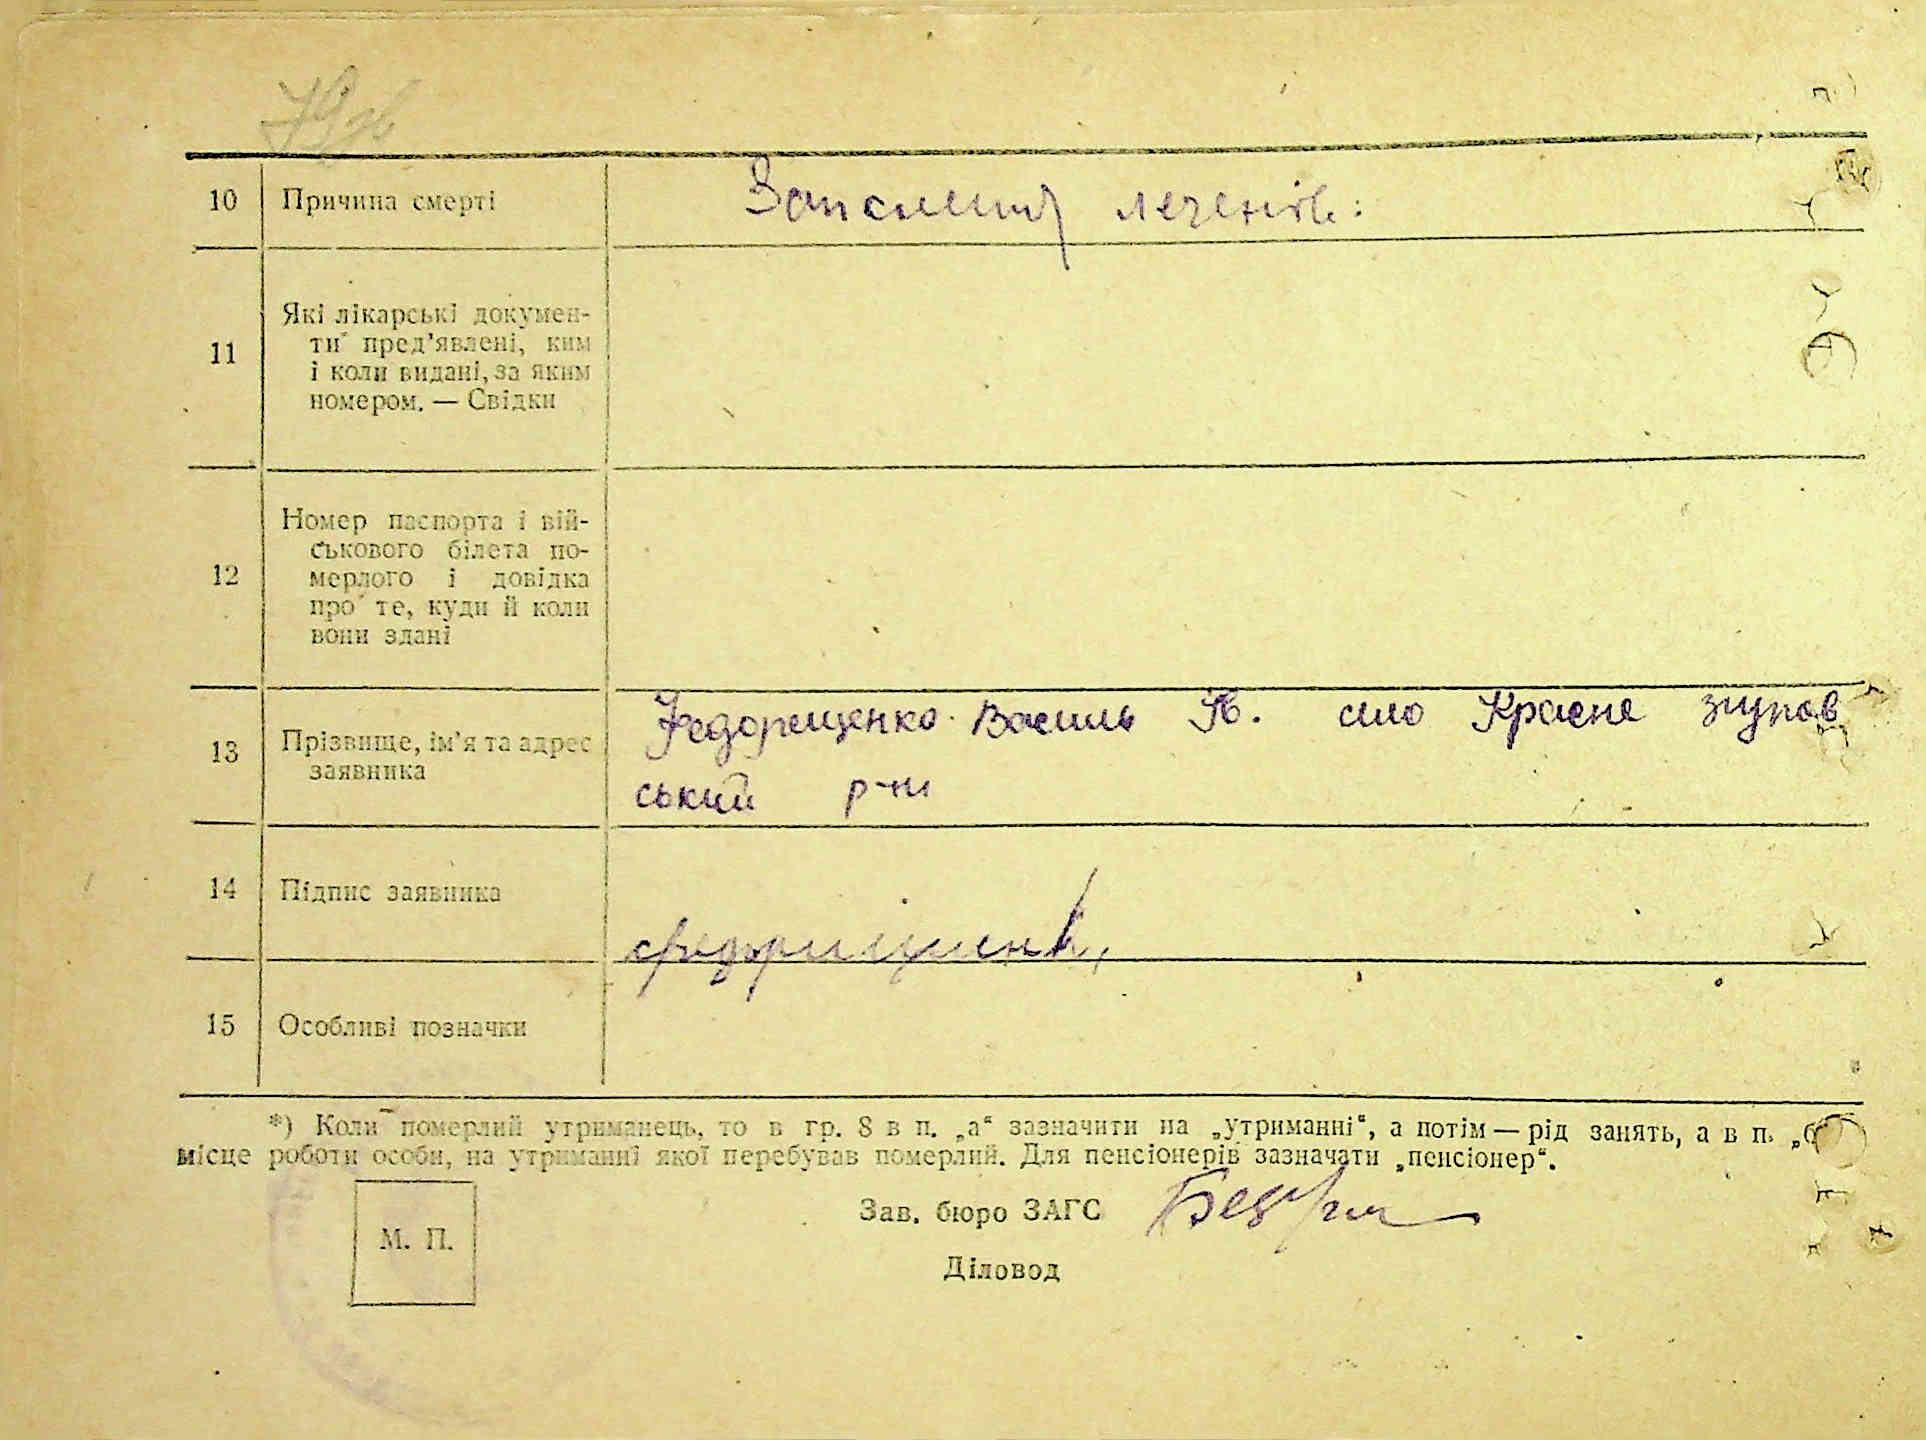 79зв
10 Причина смерті Запалення легенів:
11 Які лікарські докумен-
ти пред'явлені, ким
і коли видані, за яким
номером. — Свідки
12 Номер паспорта і вій-
ськового білета по-
мерлого і довідка
про те, куди й коли
вони здані
Федорещенко Василь село Красне згуров
13 Прізвище, ім'я та адрес
заявника
ський р-н
14 Підпис заявника
15 Особливі позначки
*) Коли померлий утриманець, то в гр. 8 в п. „а“ зазначити на „утриманні“, а потім — рід занять, а в п. „б
місце роботи особи, на утриманні якої перебував померлий. Для пенсіонерів зазначати „пенсіонер“.
Зав. бюро ЗАГС
М. П.
Діловод